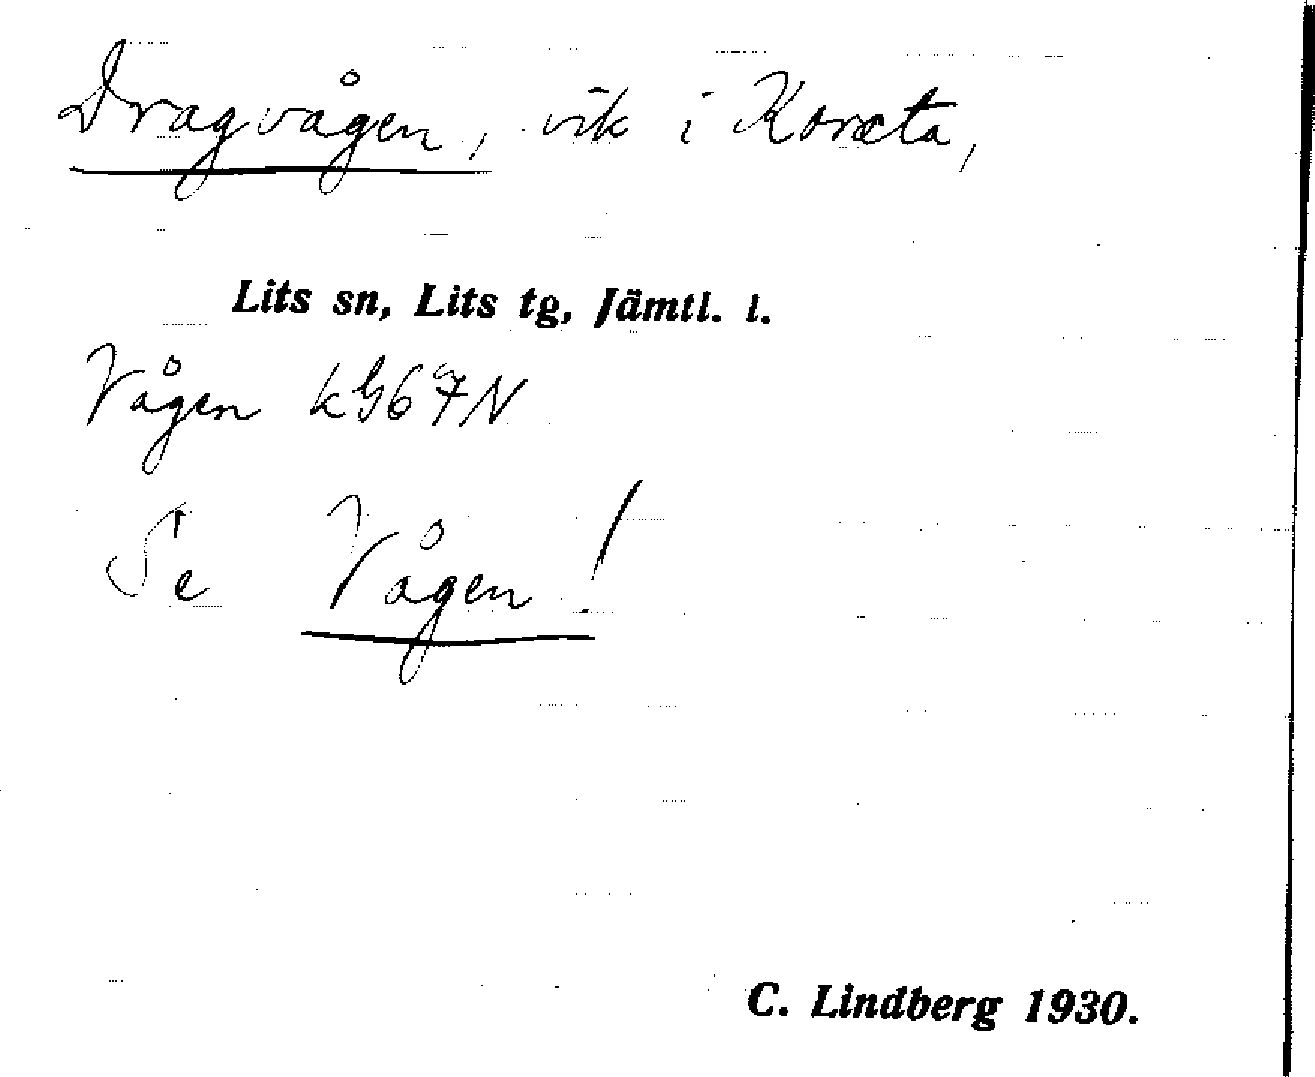 Dragvågen, vik i Korsta,
Lits sn, Lits tg, Jämtl. l.
Vågen kG67N
Se Vågen!
C. Lindberg 1930.